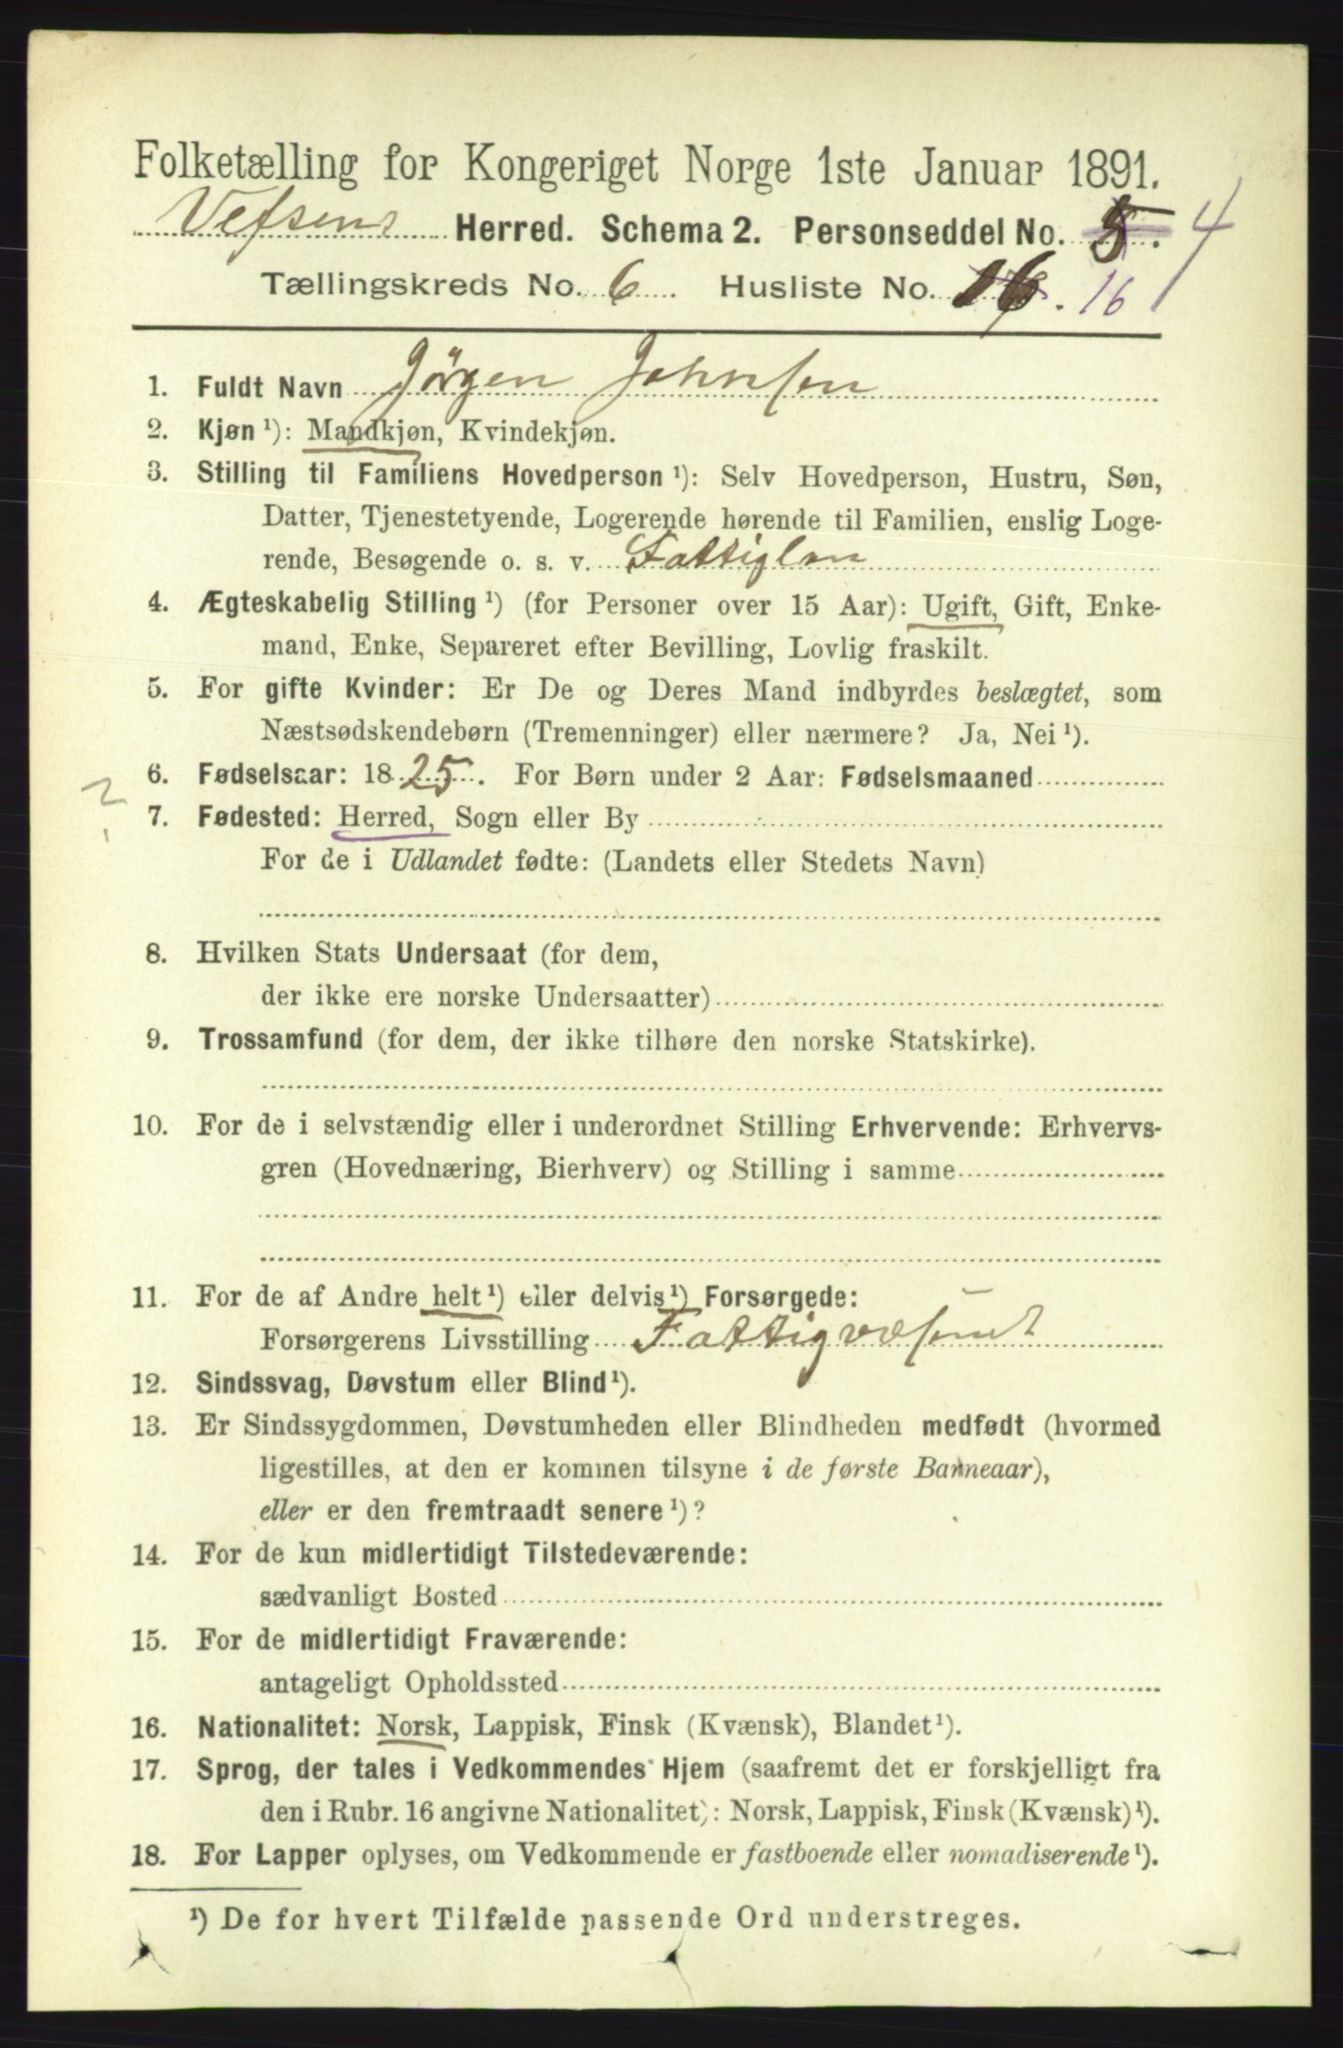 Folketælling for Kongeriget Norge 1ste Januar 1891.
Vefsens Herred. Schema 2. Personseddel No. 5. 4
Tællingskreds No. 6. Husliste No. 16. 16
1. Fuldt Navn Jørgen Johnsen
2. Kjøn¹): Mandkjøn, Kvindekjøn.
3. Stilling til Familiens Hovedperson¹): Selv Hovedperson, Hustru, Søn,
Datter, Tjenestetyende, Logerende hørende til Familien, enslig Loge-
rende, Besøgende o. s. v. Fattiglem
4. Ægteskabelig Stilling¹) (for Personer over 15 Aar): Ugift, Gift, Enke-
mand, Enke, Separeret efter Bevilling, Lovlig fraskilt.
5. For gifte Kvinder: Er De og Deres Mand indbyrdes beslægtet, som
Næstsødskendebørn (Tremenninger) eller nærmere? Ja, Nei¹).
? 6. Fødselsaar: 1825. For Børn under 2 Aar: Fødselsmaaned
7. Fødested: Herred, Sogn eller By
For de i Udlandet fødte: (Landets eller Stedets Navn)
8. Hvilken Stats Undersaat (for dem,
der ikke ere norske Undersaatter)
9. Trossamfund (for dem, der ikke tilhøre den norske Statskirke).
10. For de i selvstændig eller i underordnet Stilling Erhvervende: Erhvervs-
gren (Hovednæring, Bierhverv) og Stilling i samme
11. For de af Andre helt¹) eller delvis¹) Forsørgede:
Forsørgerens Livsstilling Fattigvæsenet
12. Sindssvag, Døvstum eller Blind¹).
13. Er Sindssygdommen, Døvstumheden eller Blindheden medfødt (hvormed
ligestilles, at den er kommen tilsyne i de første Barneaar),
eller er den fremtraadt senere¹)?
14. For de kun midlertidigt Tilstedeværende:
sædvanligt Bosted
15. For de midlertidigt Fraværende:
antageligt Opholdssted
16. Nationalitet: Norsk, Lappisk, Finsk (Kvænsk), Blandet¹).
17. Sprog, der tales i Vedkommendes Hjem (saafremt det er forskjelligt fra
den i Rubr. 16 angivne Nationalitet): Norsk, Lappisk, Finsk (Kvænsk)¹).
18. For Lapper oplyses, om Vedkommende er fastboende eller nomadiserende¹).
¹) De for hvert Tilfælde passende Ord understreges.